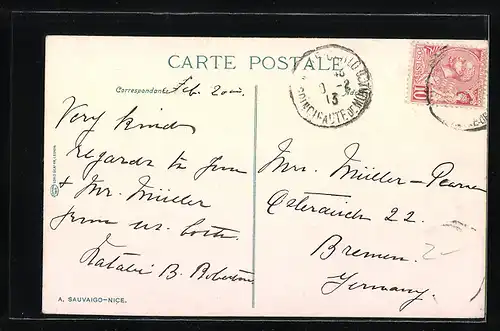 CARTE POSTALE
Correspondance
Feb. 20th.
Very kind
regards to you
& Mr. Müller
from us both
Natalie B. Robertson
Mrs. Müller-Pearse
Osterdeich 22.
Bremen.
Germany.
PRINCIPAUTÉ DE MONACO
13
10
A. SAUVAIGO-NICE.